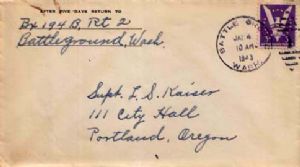 AFTER FIVE DAYS RETURN TO
Bx 194 B, Rt 2
Battleground, Wash.
BATTLE
JAN 4
10 AM
1943
WASH.
Supt. L. S. Kaiser
111 City Hall
Portland, Oregon